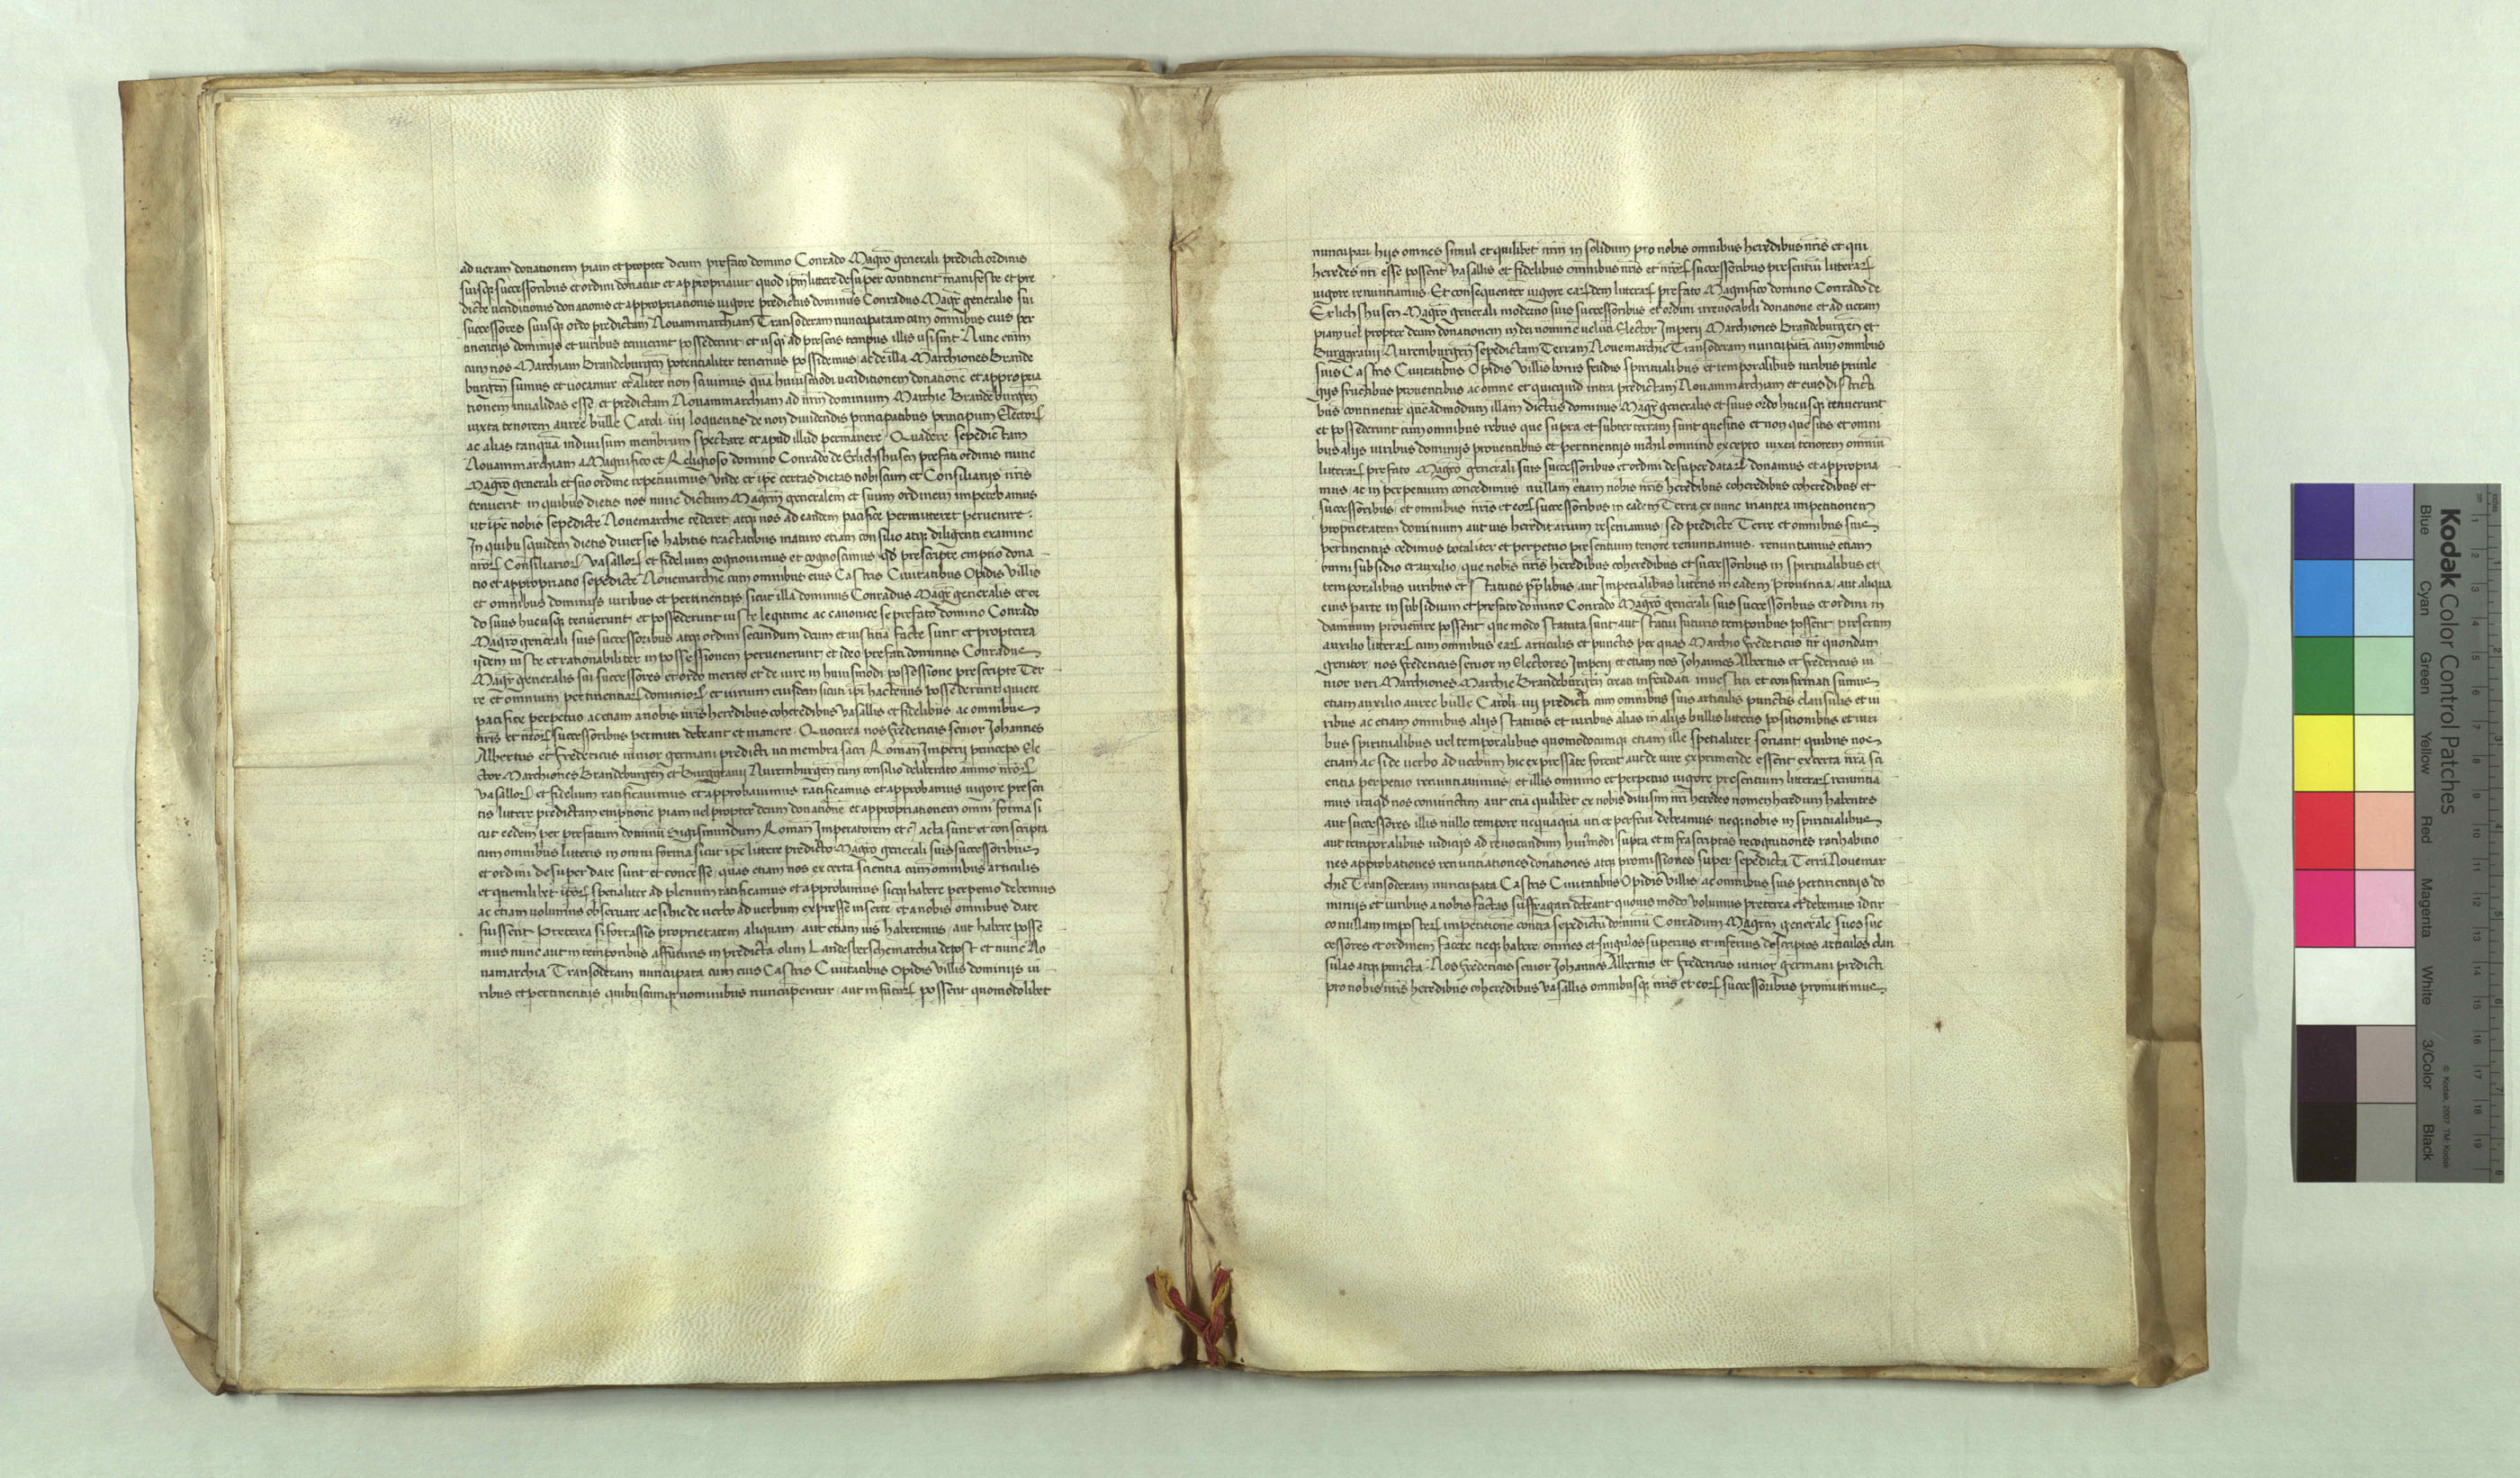 ad ueram donationem piam et propter deum prefato domino Conrado Magr̄o generali predicti ordinis
suisqȝ successoribus et ordini donauit et appropriauit quod ip̄m littere desuper continent manifeste et pre
dicte uenditionis donationis et appropriationis uigore predictus dominus Conradus Magr̄ generalis sui
successores suusqȝ ordo predictam Nouammarchiam Transoderam nuncupatam cum omnibus eius per
tinentijs dominijs et iuribus tenuerint possederint et usqȝ ad presens tempus illis usi sint Nunc enim
cum nos Marchiam Brandeburgeñ potentialiter tenemus possidemus ac de illa Marchiones Brande
burgeñ sumus et uocamur et aliter non sciuimus quā huiusmodi uenditionem donationē et appropria
tionem inualidas esse et predictam Nouammarchiam ad nr̄m dominium Marchie Brandeburgeñ
iuxta tenorem auree bulle Caroli iiij loquentis de non diuidendis principatibus principum Electorꝝ
ac alias tanquā indiuisum membrum spectare et apud illud permanere Quadere sepedictam
Nouammarchiam a Magnifico et Religioso domino Conrado de Erlichshusen prefati ordinis nunc
Magr̄o generali et suo ordine repetiuimus Unde et ip̄e certas dietas nobiscum et Consiliarijs nr̄is
tenuerit in quibus dietis nos nunc dictum Magrm̄ generalem et suum ordinem impetebamus
ut ip̄e nobis sepedicte Nouemarchie cederet atqȝ nos ad eandem pacifice permitteret peruenire
In quibusquidem dietis diuersis habitis tractatibus maturo etiam consilio atqȝ diligenti examine
nr̄orꝝ Consiliariorꝝ Vasallorꝝ et fidelium cognouimus et cognoscimus qd̄ prescripte emptio dona
tio et appropriatio sepedicte Nouemarchie cum omnibus eius Castris Ciuitatibus Opidis Villis
et omnibus dominijs iuribus et pertinentijs sicut illa dominus Conradus Magr̄ generalis et or
do suus hucusqȝ tenuerunt et possederunt iuste legitime ac canonice se prefato domino Conrado
Magr̄o generali suis successoribus atqȝ ordini secundum deum et iustitiā facte sunt et propterea
ijdem iuste et rationabiliter in possessionem peruenerunt et ideo prefati dominus Conradus
Magr̄ generalis sui successores et ordo merito et de iure in huiusmodi possessione prescripte Ter
re et omnium pertinentiarꝝ dominiorꝝ et iurium eiusdem sicuti ip̄i hactenus possederunt quiete
pacifice perpetuo ac etiam a nobis nr̄is heredibus coheredibus Vasallis et fidelibus ac omnibus
nr̄is et nr̄orꝝ successoribus permitti debeant et manere Quocirca nos Fredericus senior Johannes
Albertus et Fredericus iunior germani predicti uti membra sacri Romañ Imperij princeps Ele
ctor Marchiones Brandeburgeñ et Burggrauij Nuremburgeñ cum consilio deliberato animo nr̄orꝝ
Vasallorꝝ et fidelium ratificauimus et approbauimus ratificamus et approbamus uigore presen
tis littere predictam emptionē piam uel propter deum donationē et appropriationem omni forma si
cut eedem per prefatum dominū Sigismundum Romañ Imperatorem et c̄ acta sunt et conscripta
cum omnibus litteris in omni forma sicut ip̄e littere predicto Magr̄o generali suis successoribus
et ordini desuper date sunt et concesse quas etiam nos ex certa scientia cum omnibus articulis
et quemlibet ip̄orꝝ specialiter ad plenum ratificamus et approbamus sicqȝ habere perpetuo debemus
ac etiam uolumus obseruare ac si hic de uerbo ad uerbum expresse inserte et a nobis omnibus date
fuissent Preterea si fortassis proprietatem aliquam aut etiam ius haberemus aut habere posse
mus nunc aut in temporibus affuturis in predicta olim Landesberschemarchia depost et nunc No
uamarchia Transoderam nuncupata cum eius Castris Ciuitatibus Opidis Villis dominijs iu
ribus et pertinentijs quibuscumqȝ nominibus nuncupentur aut in futurꝝ possent quomodolibet
nuncupari hijs omnes simul et quilibet nr̄m in solidum pro nobis omnibus heredibus nr̄is et qui
heredes nr̄i esse possent Vasallis et fidelibus omnibus nr̄is et nr̄orꝝ successoribus presentiū litterarꝝ
uigore renuntiamus Et consequenter uigore earꝝdem litterarꝝ prefato Magnifico domino Conrado de
Erlichshusen Magr̄o generali moderno suis successoribus et ordini irreuocabili donatione et ad ueram
piam uel propter deum donationem in dei nomine ueluti Elector Imperij Marchiones Brandeburgeñ et
Burggrauij Nuremburgeñ sepedictam Terram Nouemarchie Transoderam nuncupatā cum omnibus
suis Castris Ciuitatibus Opidis Villis bonis feudis spiritualibus et temporalibus iuribus priuile
gijs fructibus prouentibus ac omne et quicquid intra predictam Nouammarchiam et eius districti
bus continetur quēadmodum illam dictus dominus Magr̄ generalis et suus ordo hucusqȝ tenuerunt
et possederunt cum omnibus rebus que supra et subter terram sunt quesitis et non quesitis et omni
bus alijs iuribus dominijs prouentibus et pertinentijs nichil omnino excepto iuxta tenorem omniū
litterarꝝ prefato Magr̄o generali suis successoribus et ordini desuper datarꝝ donamus et appropria
mus ac in perpetuum concedimus nullam etiam nobis nr̄is heredibus coheredibus coheredibus et
successoribus et omnibus nr̄is et eorꝝ successoribus in eadem Terra ex nunc inantea impetitionem
proprietatem dominium aut ius hereditarium reseruamus sed predicte Terre et omnibus sius
pertinentijs cedimus totaliter et perpetuo presentium tenore renuntiamus renuntiamus etiam
omni subsidio et auxilio que nobis nr̄is heredibus coheredibus et successoribus in spiritualibus et
temporalibus iuribus et Statutis pp̄libus aut Imperialibus litteris in eadem Prouincia aut aliqua
eius parte in subsidium et prefato domino Conrado Magr̄o generali suis successoribus et ordini in
damnum prouenire possent que modo statuta sunt aut statui futuris temporibus possent presertim
auxilio litterarꝝ cum omnibus earꝝ articulis et punctis per quas Marchio Fredericus nr̄ quondam
genitor nos Fredericus senior in Electores Imperij et etiam nos Johannes Albertus et Fredericus iu
nior ueri Marchiones Marchie Brandeburgeñ creati infeudati inuestiti et confirmati sumus
etiam auxilio auree bulle Caroli iiij predicti cum omnibus suis articulis punctis clausulis et iu
ribus ac etiam omnibus alijs statutis et iuribus alias in alijs bullis litteris positionibus et iuri
bus spiritualibus uel temporalibus quomodocumqȝ etiam ille specialiter sonant quibus nos
etiam ac si de uerbo ad uerbum hic expressate forent aut de iure exprimende essent ex certa nr̄a sci
entia perpetuo renuntiauimus et illis omnino et perpetuo uigore presentium litterarꝝ renuntia
mus itaqd̄ nos coniunctim aut etiā quilibet ex nobis diuisim nr̄i heredes nomen heredum habentes
aut successores illis nullo tempore nequaquā uti et perfrui debeamus neqȝ nobis in spiritualibus
aut temporalibus iudicijs ad reuocandum hui'modi supta et infrascriptas recognitiones ratihabitio
nes approbationes renunciationes donationes atqȝ promissiones super sepedicta Terra Nouemar
chie Transoderam nuncupata Castris Ciuitatibus Opidis Villis ac omnibus suis pertinentijs do
minijs et iuribus a nobis factas suffragari debeant quouis modo Volumus preterea et debemus idcir
co nullam imposterꝝ impetitionē contra sepedictū dominū Conradum Magrm̄ generalē suos suc
cessores et ordinem facere neqȝ habere omnes et singulos superius et inferius descriptos articulos clau
sulas atqȝ puncta Nos Fredericus senior Johannes Albertus et Fredericus iunior germani predicti
pro nobis nr̄is heredibus coheredibus Vasallis omnibusqȝ nr̄is et eorꝝ successoribus promittimus
Kodak Color Control Patches
Blue Cyan Green Yellow Red Magenta White 3/Color Black
© Kodak, 2007 TM: Kodak